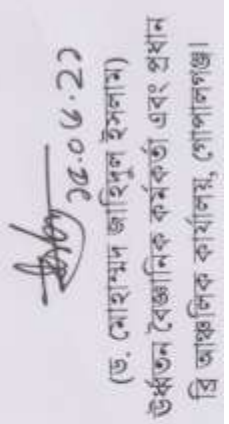 ১৫.০৬.২১
(ড. মোহাম্মদ জাহিদুল ইসলাম)
ঊর্ধ্বতন বৈজ্ঞানিক কর্মকর্তা এবং প্রধান
ব্রি আঞ্চলিক কার্যালয়, গোপালগঞ্জ।